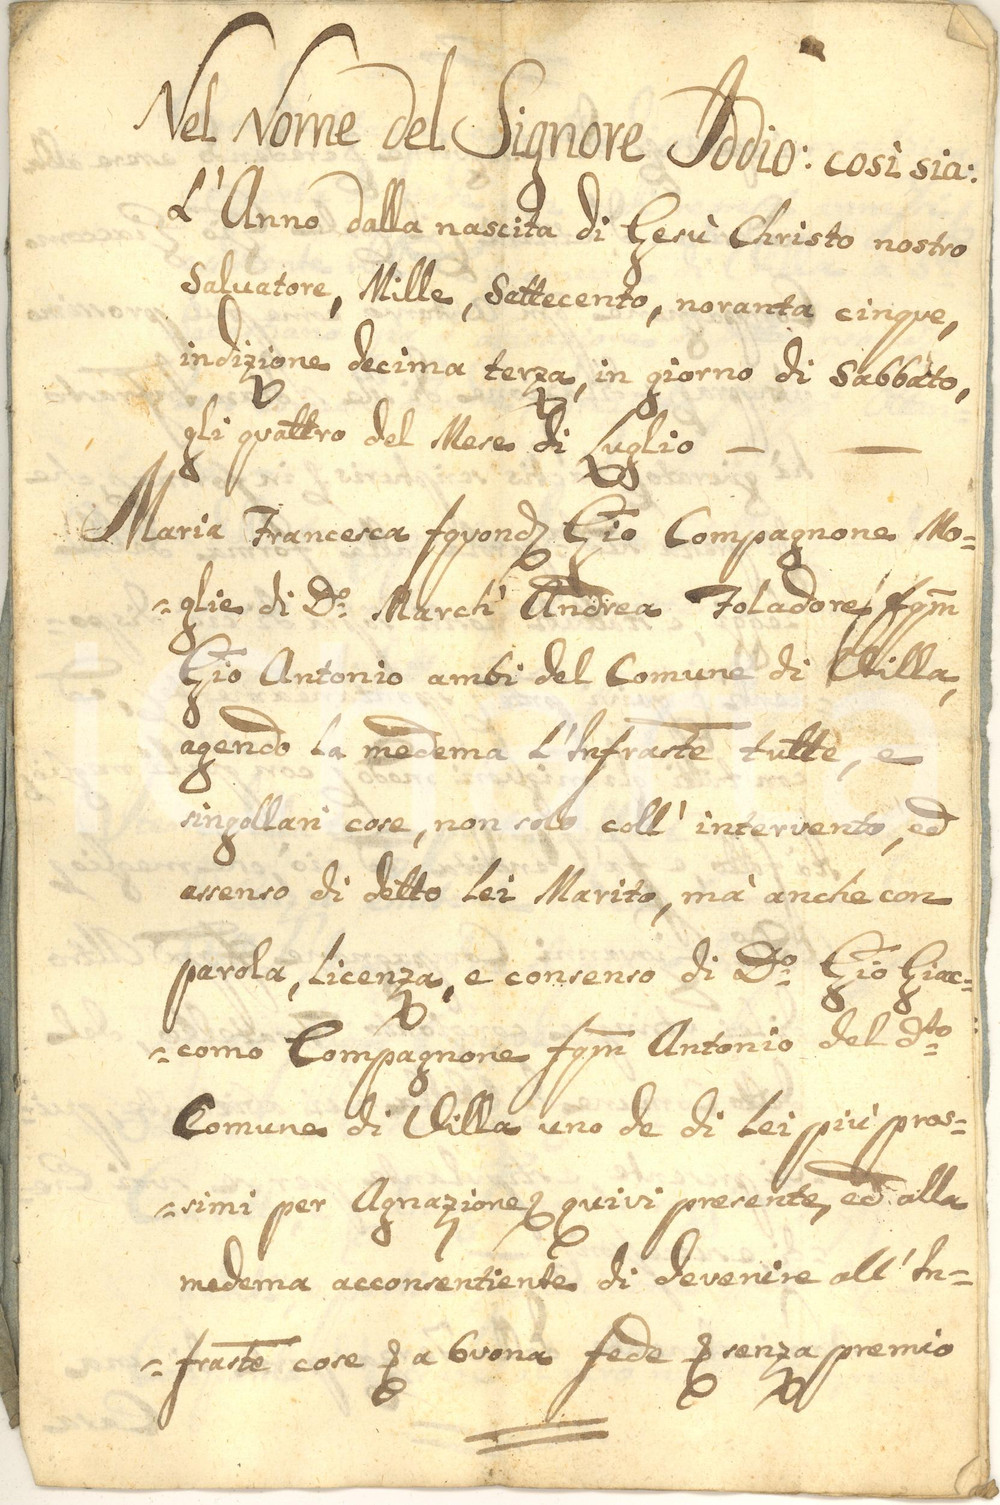 Nel Nome del Signore Iddio: così sia:
L'Anno dalla nascita di Gesù Christo nostro
Salvatore, Mille, Settecento, noranta cinque,
indizione decima terza, in giorno di Sabbato,
gli quattro del Mese di Luglio — —
Maria Francesca Gio Compagnone Mo=
=glie di Do. March' Andrea Foladore fqm
Gio Antonio ambi del Comune di Villa,
agendo la medema l'Infraste tutte, e
singollari cose, non solo coll' intervento, ed
assenso di detto Lei Marito, mà anche con
parola, licenza, e consenso di Do. Gio Giac=
=como Compagnone fqm Antonio del dto
Comune di Villa uno de di Lei più pros=
=simi per Agnazione quivi presente, ed alla
medema acconsentiente di devenire all' In=
=fraste cose a buona fede senza premio